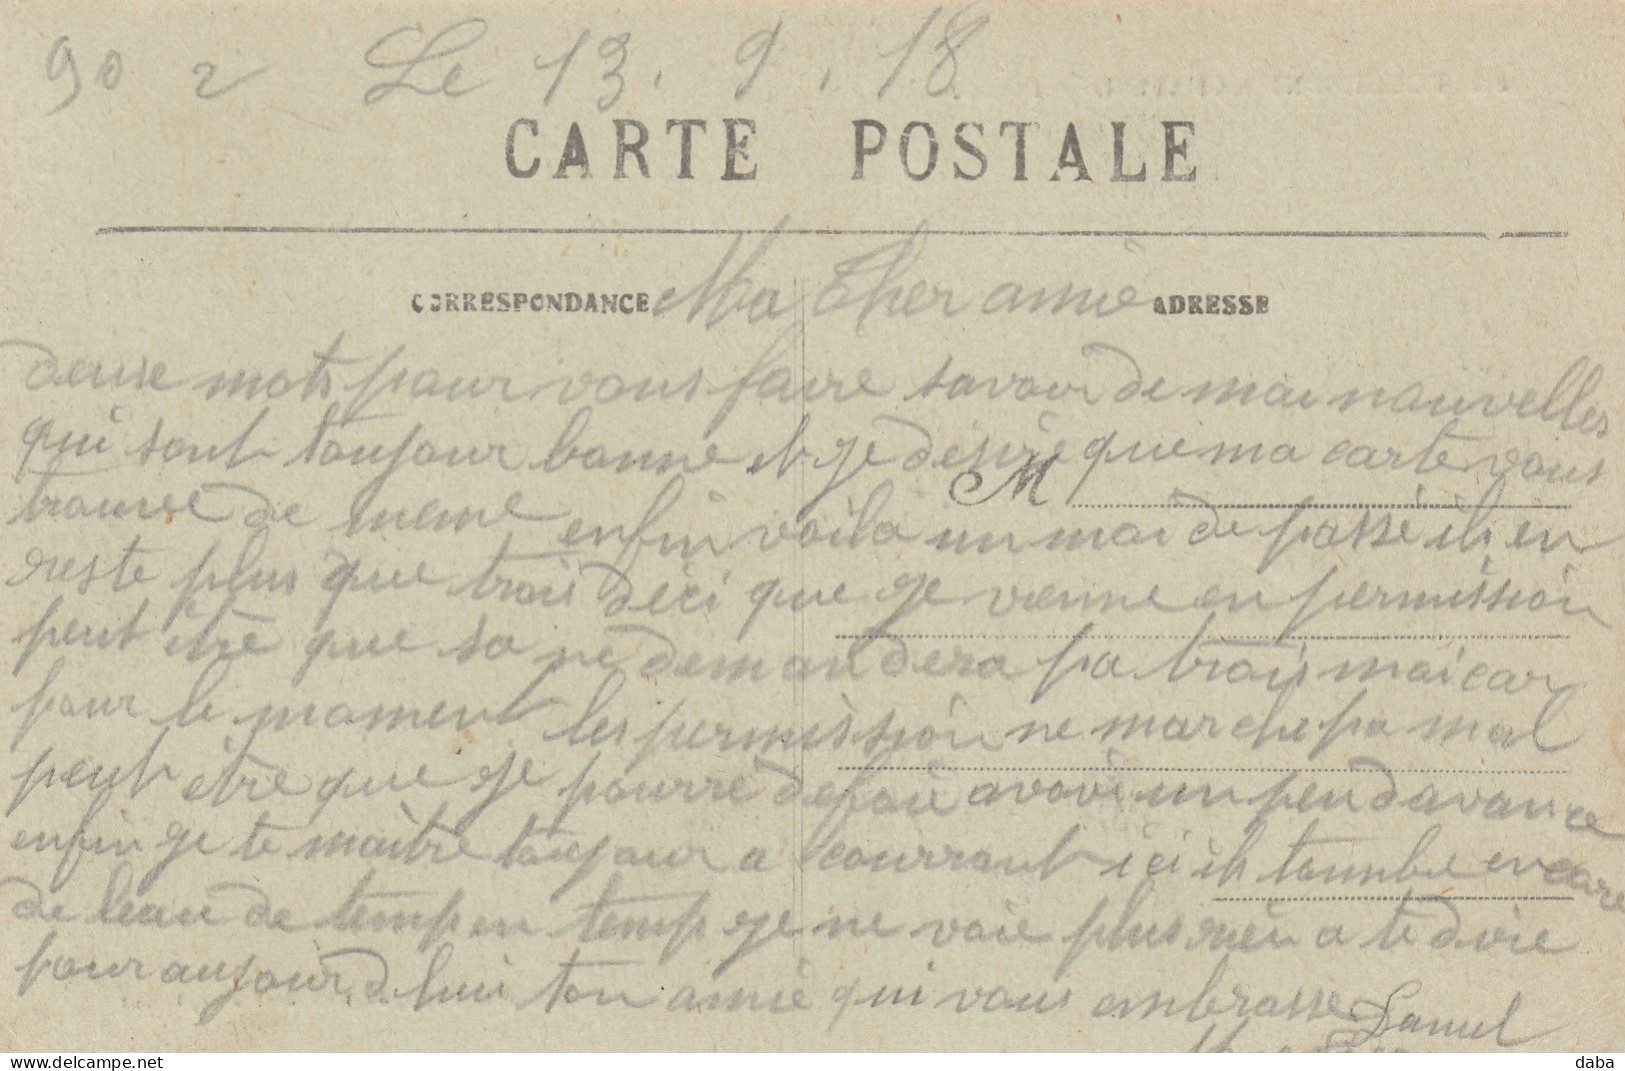 90 2 Le 13. 9. 18
CARTE POSTALE
CORRESPONDANCE Ma Cher amie ADRESSE
deuse mots pour vous faire savoir de mai nouvelles
qui sont toujour bonne et je désire que ma carte vous
M
trouve de meme enfin voila un moi de passé ih en
reste plus que trois dici que je vienne en permission
peut etre que sa ne demandera pa trois moi car
pour le moment les permission ne marche pa mal
peut être que je pourré defoi avoir un peu davance
enfin je te maitré toujour a courrant ici ih toumbe encore
de leau de temp en temp je ne voie plus rien a te dire
pour aujourd hui ton amie qui vous embrasse